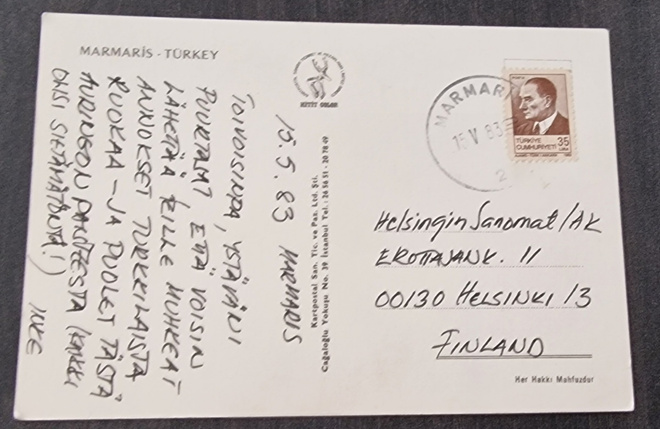 MARMARIS - TÜRKEY
15.5.83 MARMARIS
TOIVOISINPA, YSTÄVÄNI
PUURTAJAT ETTÄ VOISIN
LÄHETTÄÄ TEILLE MUHKEAT
ANNOKSET TURKKILAISTA
RUOKAA - JA PUOLET TÄSTÄ
AURINGON PAISTEESTA (KAIKKI
OLISI SIETÄMÄTÖNTÄ!)
IKKE
Kartpostal San. Tic. ve Paz. Ltd. Şti.
Cağaloğlu Yokuşu No. 39 İstanbul Tel.: 26 58 51 - 20 78 69
MARMARİS
15 V 83
2
TÜRKİYE
CUMHURİYETİ
35
LİRA
Helsingin Sanomat/AK
EROTTAJANK. 11
00130 HELSINKI 13
FINLAND
Her Hakkı Mahfuzdur